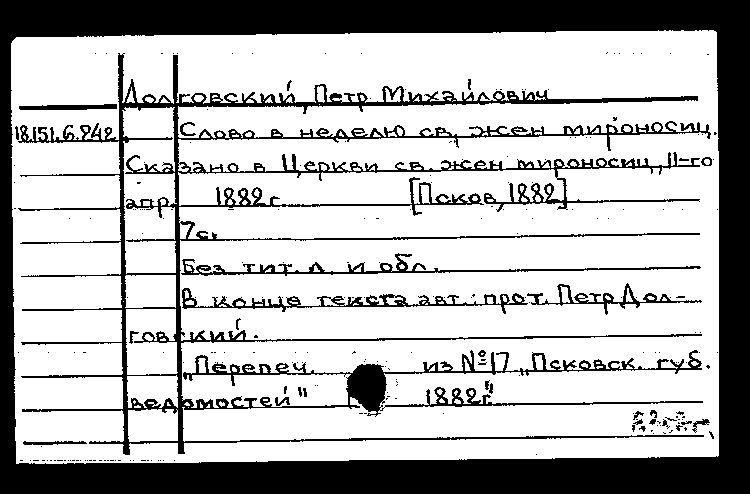 Долговский, Петр Михайлович
18.151.6.242. Слово в неделю св. жен мироносиц.
Сказано в Церкви св. жен мироносиц, 11-го
апр. 1882 г. [Псков, 1882].
7 с.
Без тит. л. и обл.
В конце текста авт.: прот. Петр Дол-
говский.
„Перепеч. из № 17 „Псковск. губ.
ведомостей" 1882г."